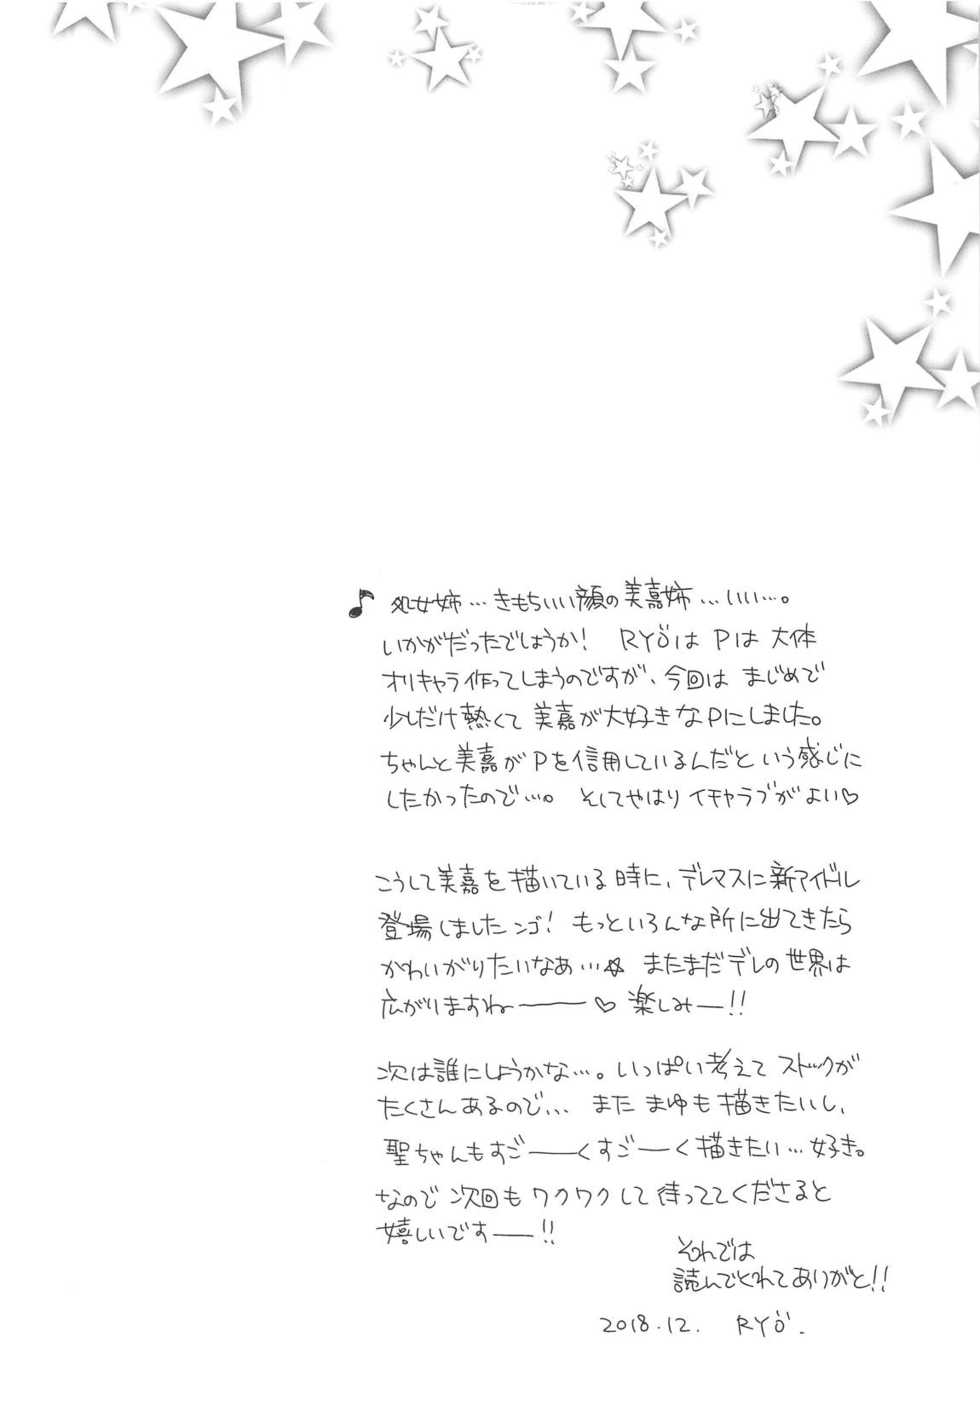 ♪ 処女姉…きもちいい顔の美嘉姉…いい…。
いかがだったでしょうか! RYÖは Pは 大体
オリキャラ作ってしまうのですが、今回は まじめで
少しだけ熱くて 美嘉が大好きなPにしました。
ちゃんと美嘉がPを信用しているんだと いう感じに
したかったので…。 そしてやはり イチャラブがよい♡
こうして美嘉を描いている時に、デレマスに新アイドル
登場しましたンゴ! もっといろんな所に出てきたら
かわいがりたいなあ…☆ またまだデレの世界は
広がりますねー♡ 楽しみー!!
次は誰にしようかな…。いっぱい考えて ストックが
たくさんあるので… また まゆも描きたいし、
聖ちゃんもすごーくすごーく描きたい…好き。
なので 次回も ワクワクして待っててくださると
嬉しいですー!!
それでは
読んでくれてありがと!!
2018.12. RYÖ.